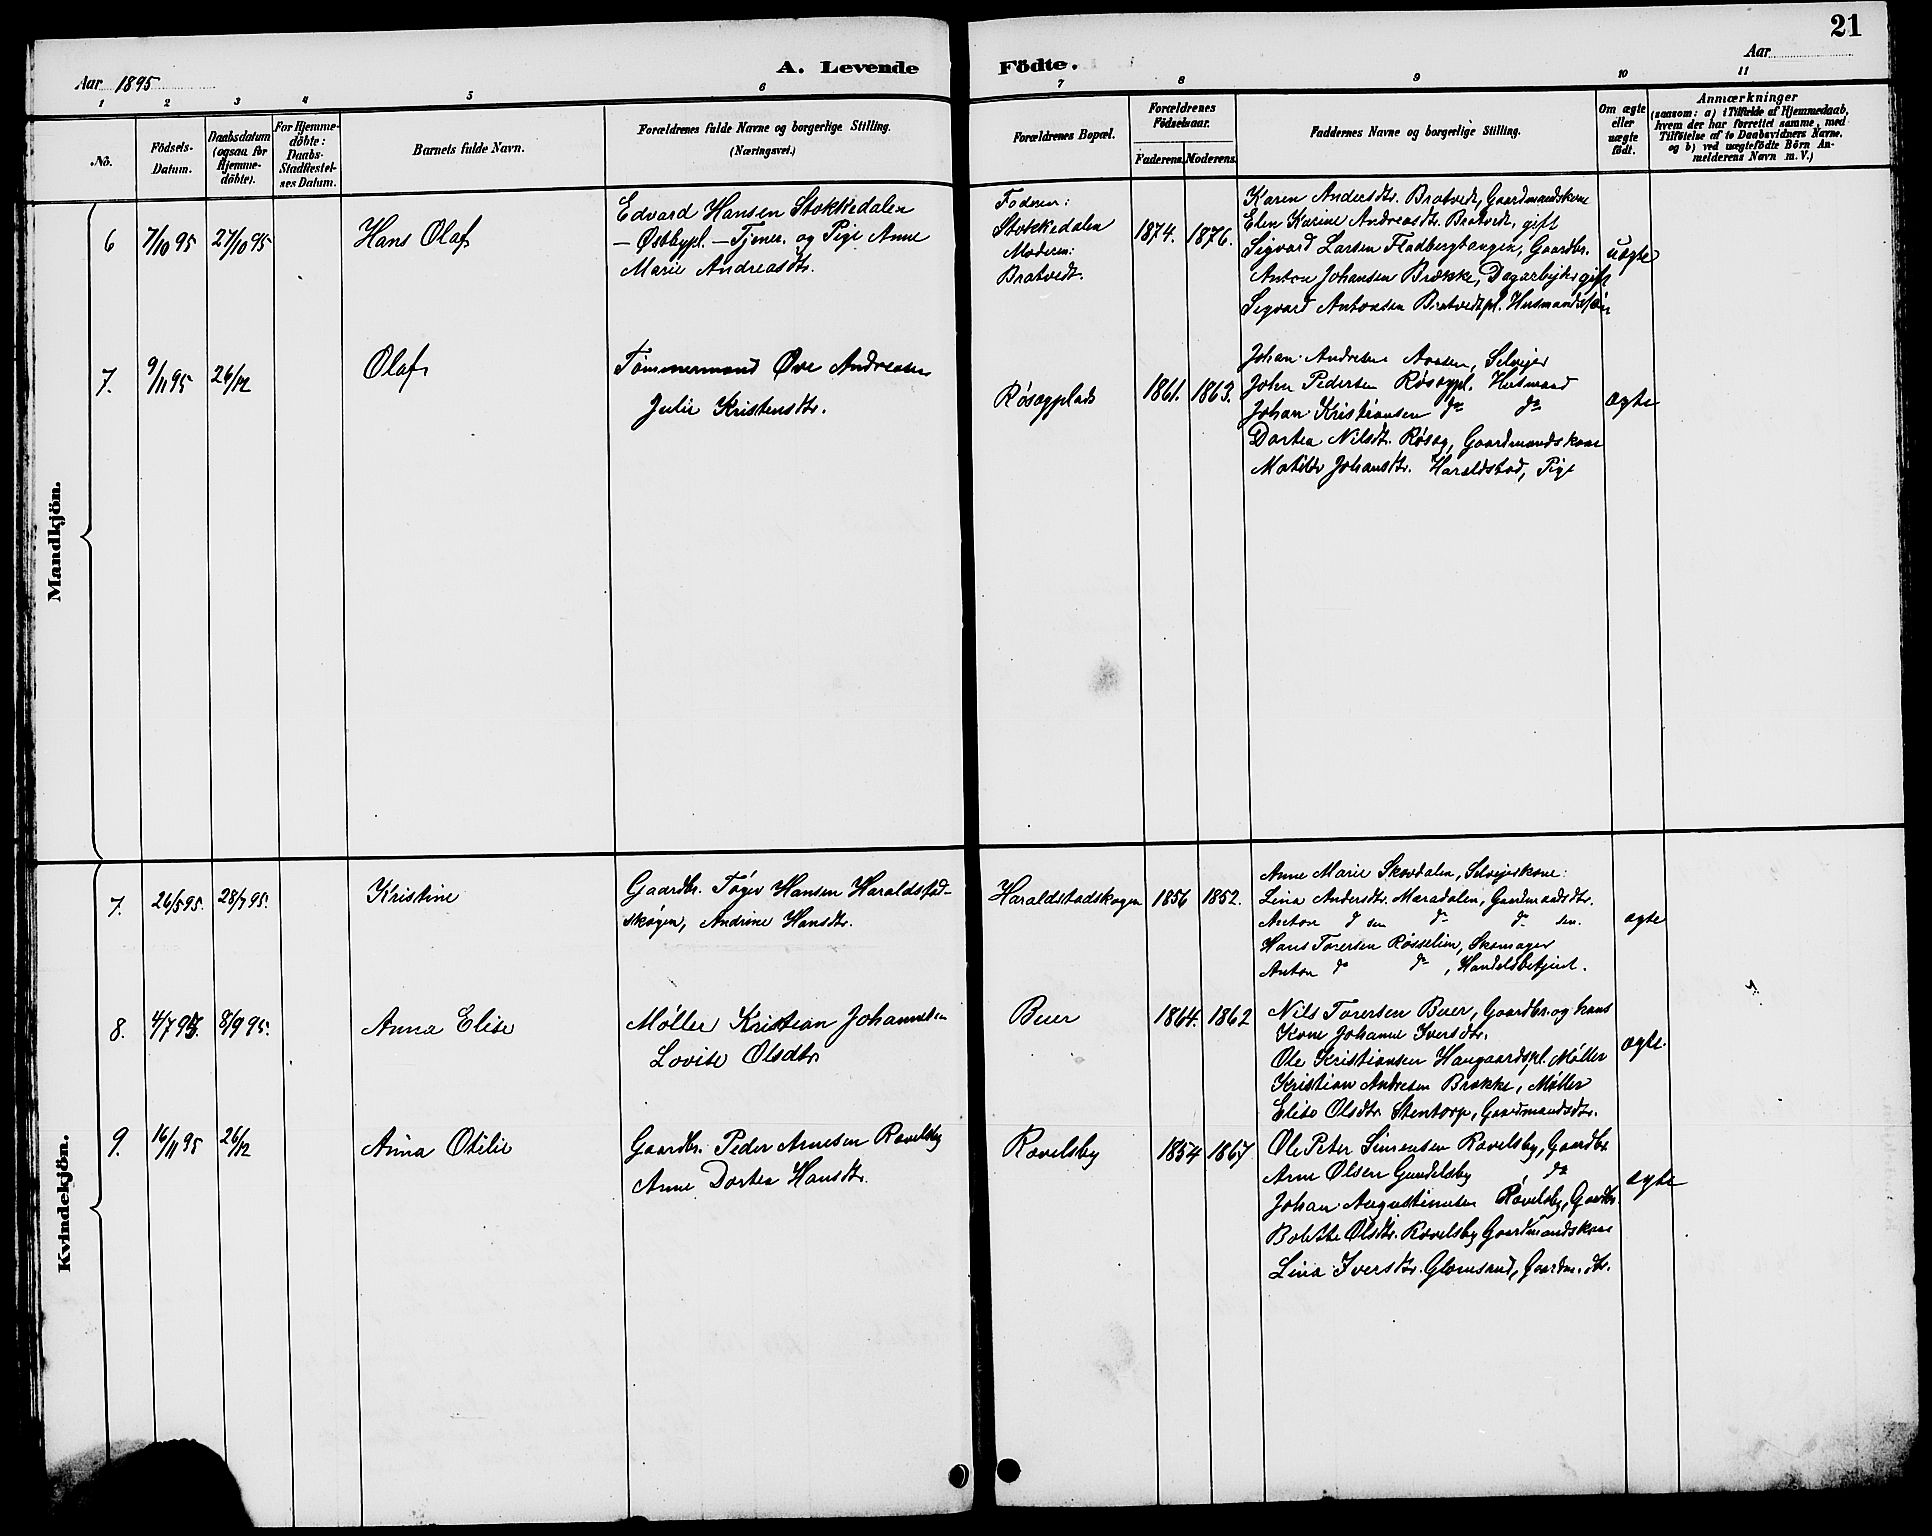 21
Aar 1895
A. Levende Födte.
Aar
1 2 3 4 5 6 7 8 9 10 11
No.
Födsels-Datum.
Daabsdatum (ogsaa for Hjemme-döbte).
For Hjemme-döbte: Daabs-Stadfestel-ses Datum.
Barnets fulde Navn.
Forældrenes fulde Navne og borgerlige Stilling.
(Næringsvei.)
Forældrenes Bopæl.
Forældrenes Födselsaar.
Faderens. Moderens.
Faddernes Navne og borgerlige Stilling.
Om ægte eller uægte födt.
Anmærkninger
(saasom: a) i Tilfælde af Hjemmedaab,
hvem der har forrettet samme, med
Tilföielse af to Daabsvidners Navne.
og b) ved uægtefödte Börn An-
melderens Navn m. V.)
Mandkjön.
6 7/10 95 27/10 95 Hans Olaf
Edvard Hansen Stokkedalen
– Østbypl. – Tjener. og Pige Anne
Marie Andreasdtr.
Faderen:
Stokkedalen
Moderen:
Bratvedt.
1874. 1876.
Karen Andersdtr. Bratvedt, Gaardmandskone
Elen Karine Andreasdtr. Bratvedt, gift
Sigvard Larsen Fladbergbangen, Gaardbr.
Anton Johansen Brække, Dagarbejder gift
Sigvard Antonsen Bratvedtpl. Husmandssøn
uægte
7. 9/11 95 26/12 Olaf
Tømmermand Ove Andreasen
Julie Kristensdtr.
Røsægplads
1861. 1863.
Johan Andresen Aasen, Selvejer
John Pedersen Røsægpl. Husmand
Johan Kristiansen do do
Dortea Nilsdtr. Røsæg, Gaardmandskone
Matilde Johansdtr. Haraldstad, Pige
ægte
Kvindekjön.
7. 26/5 95. 28/7 95. Kristine
Gaardbr. Tøger Hansen Haraldstad-
skogen, Andrine Hansdtr.
Haraldstadskogen
1856 1852.
Anne Marie Skovdalen, Selvejerskone:
Lina Andersdtr. Maradalen, Gaardmandsdtr.
Anton do sen do do sen.
Hans Torersen Røsselien, Skomager
Anton do do, Handelsbetjent.
ægte
8. 4/7 95. 8/9 95. Anna Elise
Møller Kristian Johannesen
Lovise Olsdtr.
Buer
1864. 1862
Nils Torersen Buer, Gaardbr. og hans
Kone Johanne Iversdtr.
Ole Kristiansen Haugaardspl. Møller
Kristian Andresen Brække, Møller
Elise Olsdtr. Stentorp, Gaardmandsdtr.
ægte.
9. 16/11 95 26/12 Anna Otilie
Gaardbr. Peder Arnesen Ravelsby
Anne Dortea Hansdtr.
Ravelsby
1854 1867
Ole Peter Simensen Ravelsby, Gaardbr.
Arne Olsen Gundelsby do
Johan Augustinusen Ravelsby, Gaardbr.
Bolette Olsdtr. Ravelsby Gaardmandskone
Lina Iversdtr. Glomsrud, Gaardm. dtr.
ægte